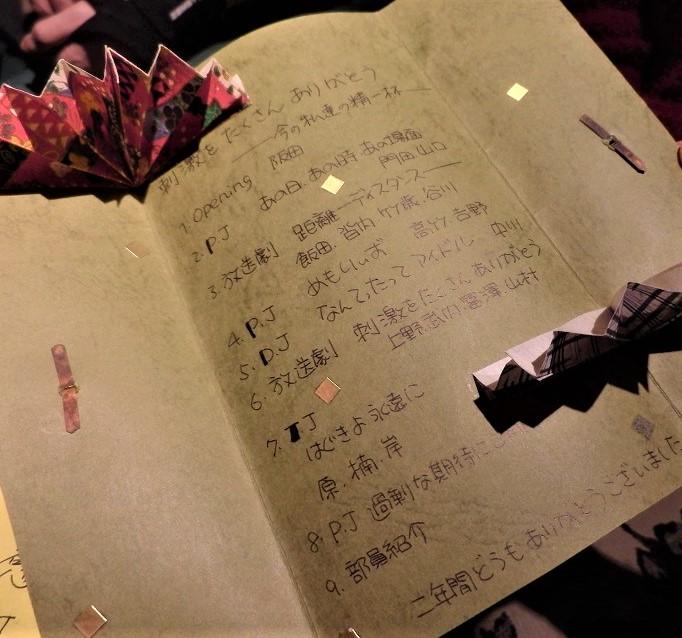 刺激を たくさん ありがとう
──今の私達の精一杯──
1. Opening 阪田
2. P.J あの日、あの時、あの場面
門田 山口
3. 放送劇 距離──ディスタンス──
飯田 谷川
4. P.J めもりいず 高竹 吉野
5. P.J なんてったって アイドル 中川
6. 放送劇 刺激をたくさん ありがとう
上野 武内 富澤 山村
7. P.J はぐきよ 永遠に
原、楠、岸
8. P.J 過剰な期待に
9. 部員紹介
二年間どうもありがとうございました